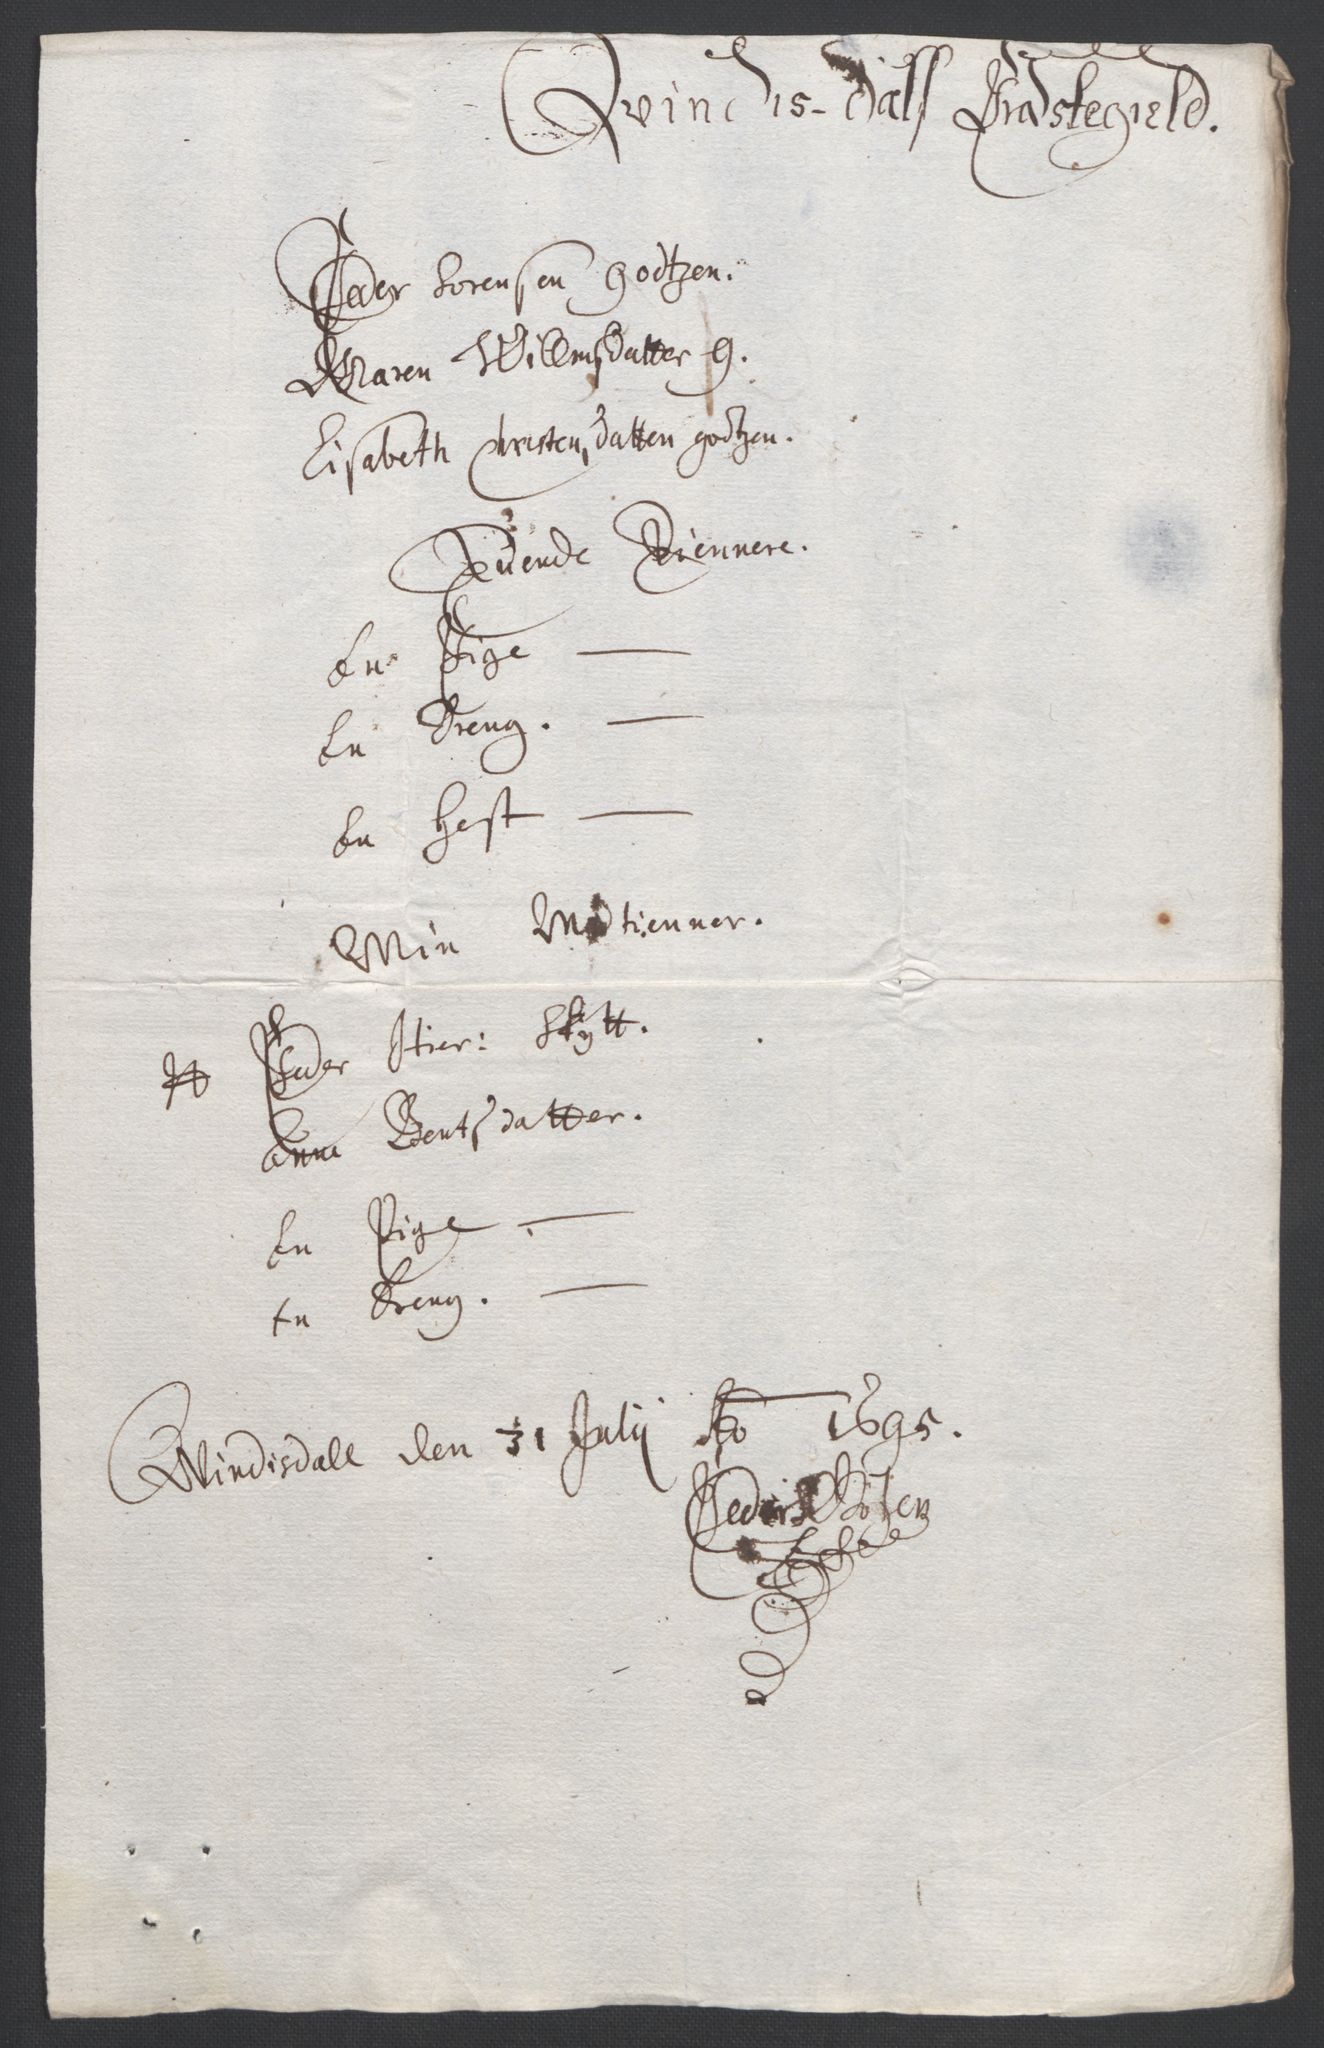 Qvindis-dals Præstegield.
Peder Sorensen Godtzen.
Maren Willmsdatter G.
Lisabeth Christensdatter godtzen.
Tienere.
En Pige —
En Dreng. —
En Hest —
Min Medtienner.
Hr Peder Skytt.
Anne Bentsdatter.
En Pige —
En Dreng. —
Qvindisdall den 31 Julij Ao 1695.
Peder Gotzen